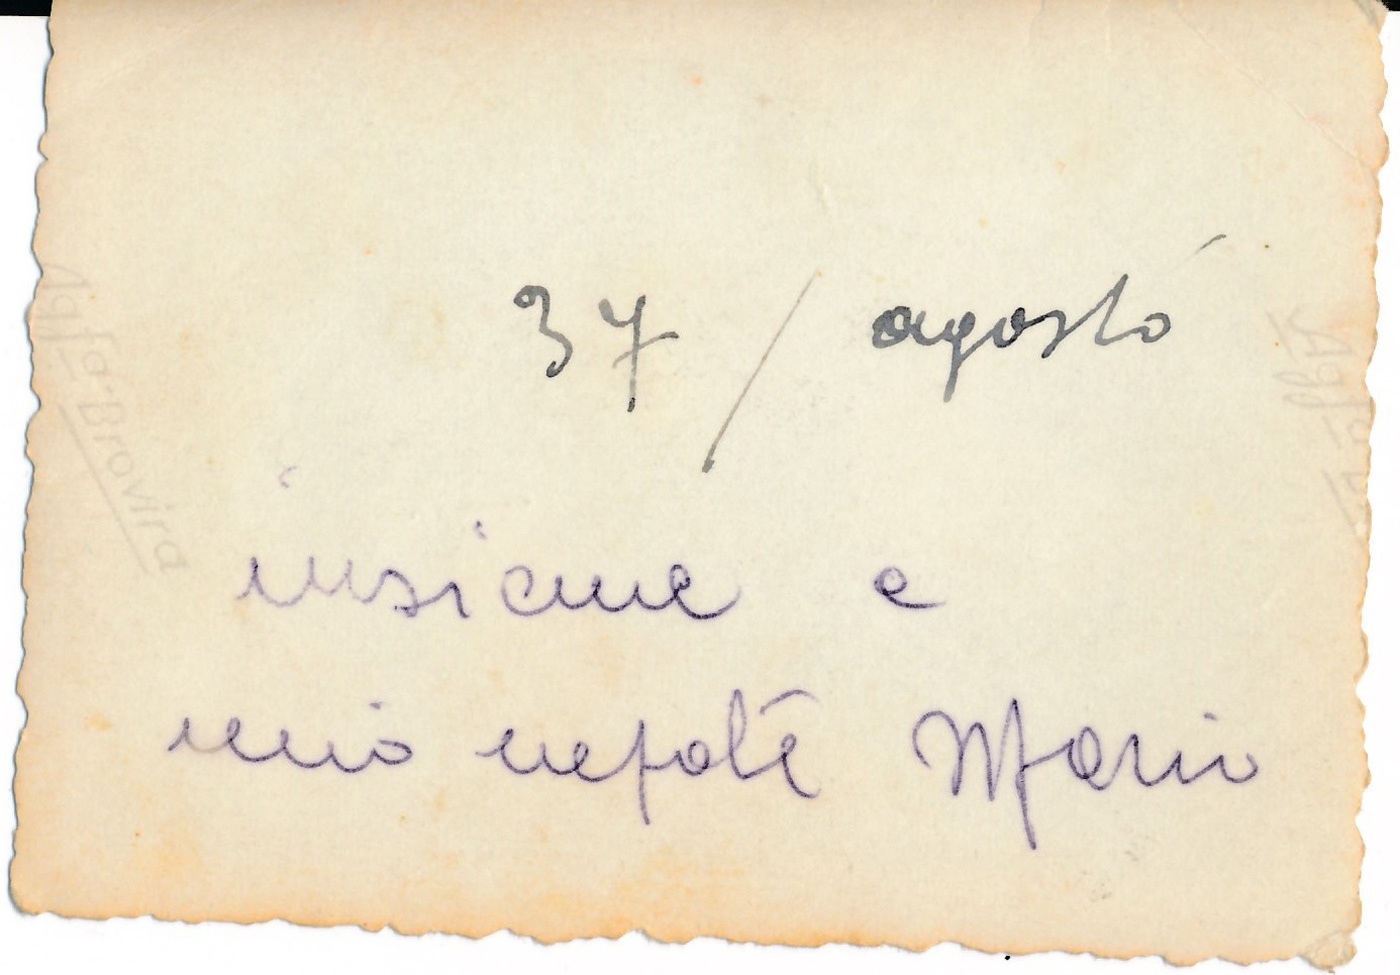 37 / agosto
insieme e
mio nepote Mario
Agfa-Brovira
Agfa